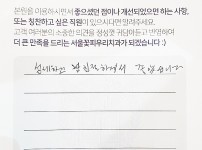 본원을 이용하시면서 좋으셨던 점이나 개선되었으면 하는 사항,
또는 칭찬하고 싶은 직원이 있으시다면 알려주세요.
고객 여러분의 소중한 의견을 정성껏 귀담아듣고 반영하여
더 큰 만족을 드리는 서울꽃피우리치과가 되겠습니다 :)
섬세하고 꼼꼼하셔서 좋았습니다